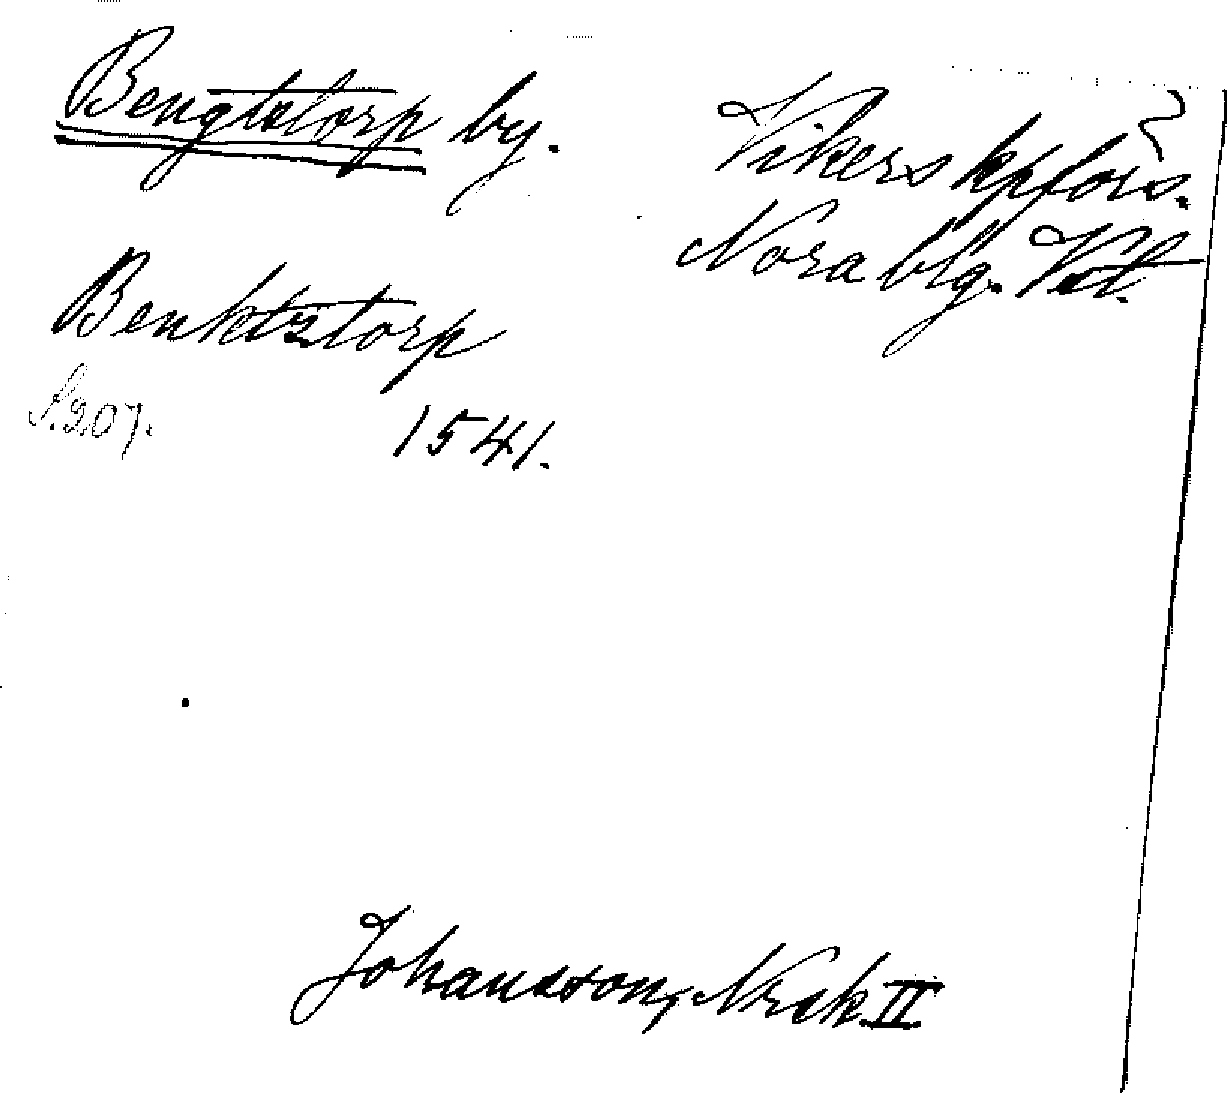 Bengtstorp by.
Vikers kpförs.
Nora blg. Vstl.
Benktztorp
S. 207.
1541.
Johansson, Nrsk II